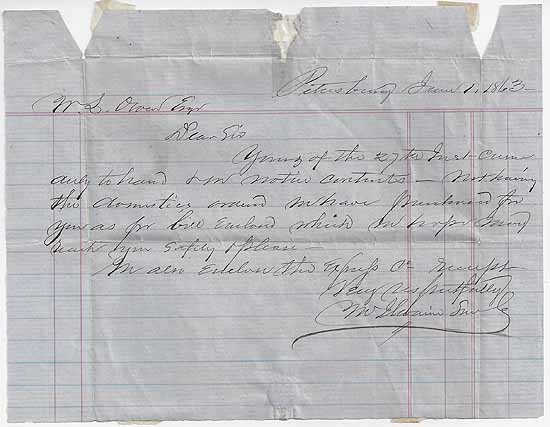 Petersburg June 1, 1863
W. L. Owen Esqr
Dear Sir
Yours of the 27th Inst came
duly to hand & we notice contents — not having
the domestics ordered we have purchased for
you as per bill Enclosed which we hope may
reach you safely & please —
We also Enclose the Express Co receipt
Very respectfully
McIlwaine Son & Co